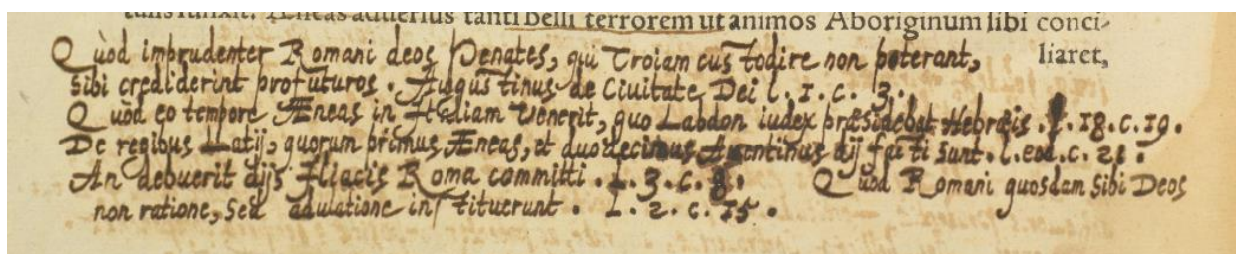 Æneas aduersus tanti belli terrorem ut animos Aboriginum sibi conci-
liaret,
Quòd imbrudenter Romani deos Penates, qui Troiam custodire non poterant,
sibi crediderint profuturos. Augustinus de Ciuitate Dei l. 1. c. 3.
Quòd eo tempore Æneas in Italiam venerit, quo Labdon iudex præsidebat Hebræis. l. 18. c. 19.
De regibus Latij, quorum primus Æneas, et duodecimus Auentinus dij facti sunt. l. eod. c. 21.
An debuerit dijs Iliacis Roma committi. l. 3. c. 8.
Quòd Romani quosdam sibi Deos
non ratione, sed adulatione instituerunt. l. 2. c. 15.